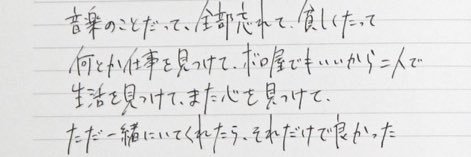 音楽のことだって、全部忘れて、貧しくたって
何とか仕事を見つけて、ボロ屋でもいいから二人で
生活を見つけて、また心を見つけて、
ただ一緒にいてくれたら、それだけで良かった